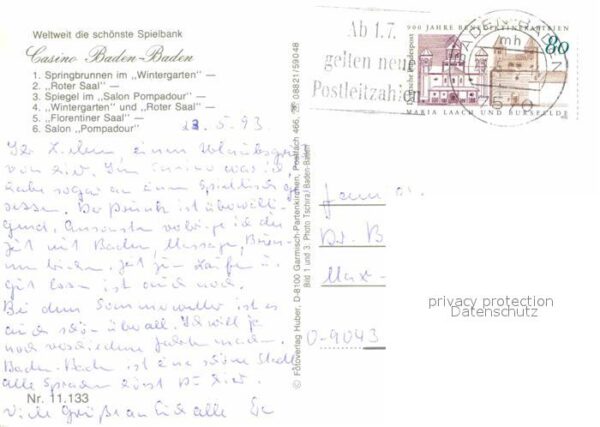 Weltweit die schönste Spielbank
Casino Baden-Baden
1. Springbrunnen im „Wintergarten" —
2. „Roter Saal" —
3. Spiegel im „Salon Pompadour" —
4. „Wintergarten" und „Roter Saal" —
5. „Florentiner Saal" —
6. Salon „Pompadour"
23.5.93
Ihr Lieben, einen Urlaubsgruß
von hier. Im Casino was ich
habe sogar an einem Spieltisch ge-
sessen. Der Prunk ist überwälti-
gend. Ansonsten verbringe ich die
Zeit mit Baden, Massage,
gut essen ist auch noch.
Bei dem Sommerwetter ist es
auch schön überall. Ich will ja
noch verschiedene Fahrten machen.
Baden-Baden ist eine schöne Stadt
alle Sprachen hört hier.
Viele Grüße an Euch alle
Nr. 11.133
© Fotoverlag Huber, D-8100 Garmisch-Partenkirchen, Postfach 466, ☎ 08821/59048
Bild 1 und 3: Photo Tschira/Baden-Baden
Ab 1.7.
gelten neue
Postleitzahlen
900 JAHRE BENEDIKTINERABTEIEN
80
Deutsche Bundespost
MARIA LAACH UND BURSFELDE
BADEN-BADEN
mh
7570
Dr. B
Max-
O-9043
privacy protection
Datenschutz